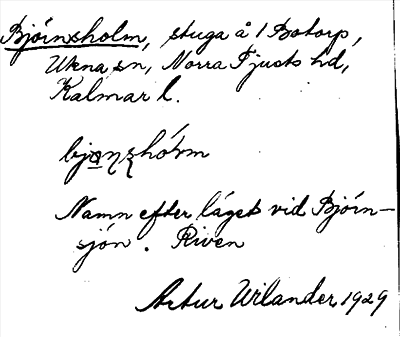 Björnsholm, stuga å 1 Botorp,
Ukna sn, Norra Tjusts hd,
Kalmar l.
Namn efter läget vid Björn-
sjön. Riven
Artur Wilander 1929